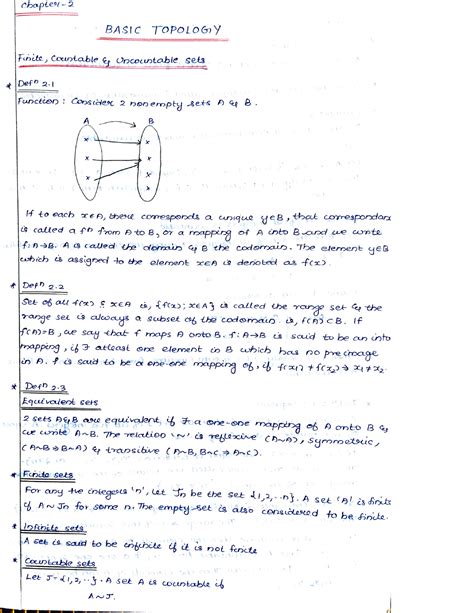 Chapter-2
BASIC TOPOLOGY
Finite, Countable & Uncountable sets
* Defn 2.1
Function : Consider 2 nonempty sets A & B.
A B
x x
x x
x x
x
If to each x∈A, there corresponds a unique y∈B, that correspondance
is called a fn from A to B, or a mapping of A into B and we write
f:A→B. A is called the domain & B the codomain. The element y∈B
which is assigned to the element x∈A is denoted as f(x).
* Defn 2.2
Set of all f(x) ; x∈A is, {f(x); x∈A} is called the range set & the
range set is always a subset of the codomain is, f(A)⊂B. If
f(A)=B, we say that f maps A onto B. f:A→B is said to be an into
mapping, if ∃ atleast one element in B which has no preimage
in A. f is said to be a one-one mapping of, if f(x1) ≠ f(x2) ⇒ x1≠x2.
* Defn 2.3
Equivalent sets
2 sets A&B are equivalent if ∃ a one-one mapping of A onto B &
we write A∼B. The relation '∼' is reflexive (A∼A), symmetric,
(A∼B⇒B∼A) & transitive (A∼B, B∼C⇒A∼C).
* Finite sets
For any +ve integers 'n', let Jn be the set {1,2,..n}. A set 'A' is finite
if A∼Jn for some n. The empty set is also considered to be finite.
* Infinite sets
A set is said to be infinite if it is not finite
* Countable sets
Let J={1,2,..}. A set A is countable if
A∼J.